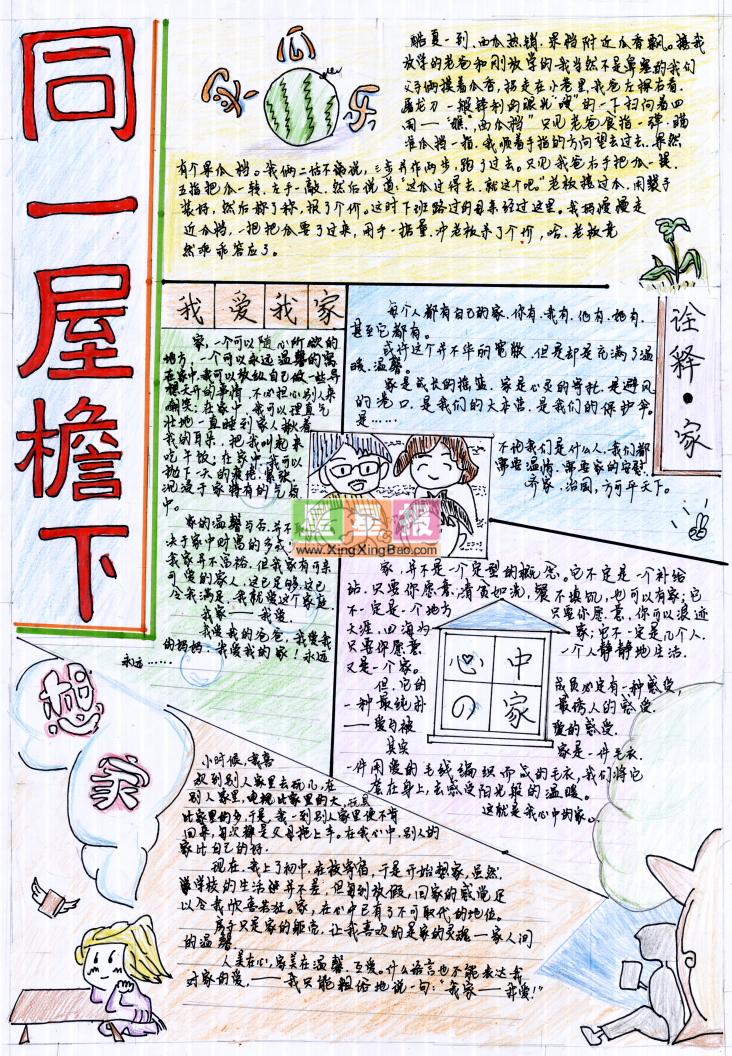 同一屋檐下
瓜
乐
酷夏一到、西瓜热销、果档附近瓜香飘。接我
放学的老爸和刚放学的我当然不是鼻塞的我们
父子俩摸着瓜香，拐走在小巷里，我爸左探右看，
有个果瓜档。我俩二话不说，三步并作两步，跑了过去。只见我爸右手把瓜一提
五指把瓜一转，左手一敲，然后说道："这瓜过得去，就这个吧。"老板接过瓜，用袋子
装好，然后称了称，报了个价。这时下班路过的母亲经过这里。我妈慢慢走
近瓜档，一把把瓜要了过来，用手一掂量，冲老板杀了个价，哈，老板竟
然乖乖答应了。
我爱我家
家，一个可以随心所欲的
地方，一个可以永远温馨的窝
在家中我可以放纵自己做一些异
想天开的事情，不必担心别人来
嘲笑；在家中，我可以理直气
壮地一直睡到家人揪着
我的耳朵，把我叫起来
吃午饭；在家中，我可以
抛下一天的疲倦，紧张，
沉浸于家特有的气氛
中。
家的温馨与否，并不取
决于家中财富的多或少
我家并不富裕，但我家有可亲
可爱的家人，这已足够，这已
令我满足，我就爱这个家庭
我家——我爱。
我爱我的爸爸，我爱我
的妈妈，我爱我的家！永远
永远……
诠释·家
每个人都有自己的家，你有，我有，他有，她有，
甚至它都有。
或许这个并不华丽宽敞，但是却是充满了温
暖、温馨。
家是成长的摇篮，家是心灵的寄托，是避风
的港口，是我们的大本营，是我们的保护伞。
是……
不论我们是什么人，我们都
需要温情，需要家的安慰。
齐家，治国，方可平天下。
红星报
www.XingXingBao.com
家，并不是一个定型的概念。它不定是一个补给
站，只要你愿意，清贫如洗，饔不填饥，也可以有家；它
不一定是一个地方 只要你愿意，你可以浪迹
天涯，四海为 家；它不一定是几个人，
只要你愿意 一个人静静地生活，
又是一个家。
心中の家
但，它的 成员必定有一种感觉，
一种最纯朴 最诱人的感觉，
——爱与被 爱的感觉。
其实 家是一件毛衣，
一件用爱的毛线编织而成的毛衣，我们将它
套在身上，去感受阳光般的温暖。
这就是我心中的家。
想家
小时候，我喜
欢到别人家里去玩儿，在
别人家里，电视比家里的大，玩具
比家里的多，于是，我一到别人家里便不肯
回来，每次都是父母拖上车。在我心中，别人的
家比自己的好。
现在，我上了初中，在校寄宿，于是开始想家，虽然，
说学校的生活也并不差，但每到放假，回家的感觉足
以令我欣喜若狂。家，在心中已有了不可取代的地位。
房子只是家的躯壳，让我喜欢的是家的灵魂—家人间
的温馨
人美在心，家美在温馨，互爱。什么语言也不能表达我
对家的爱，——我只能粗俗地说一句："我家——我爱！"